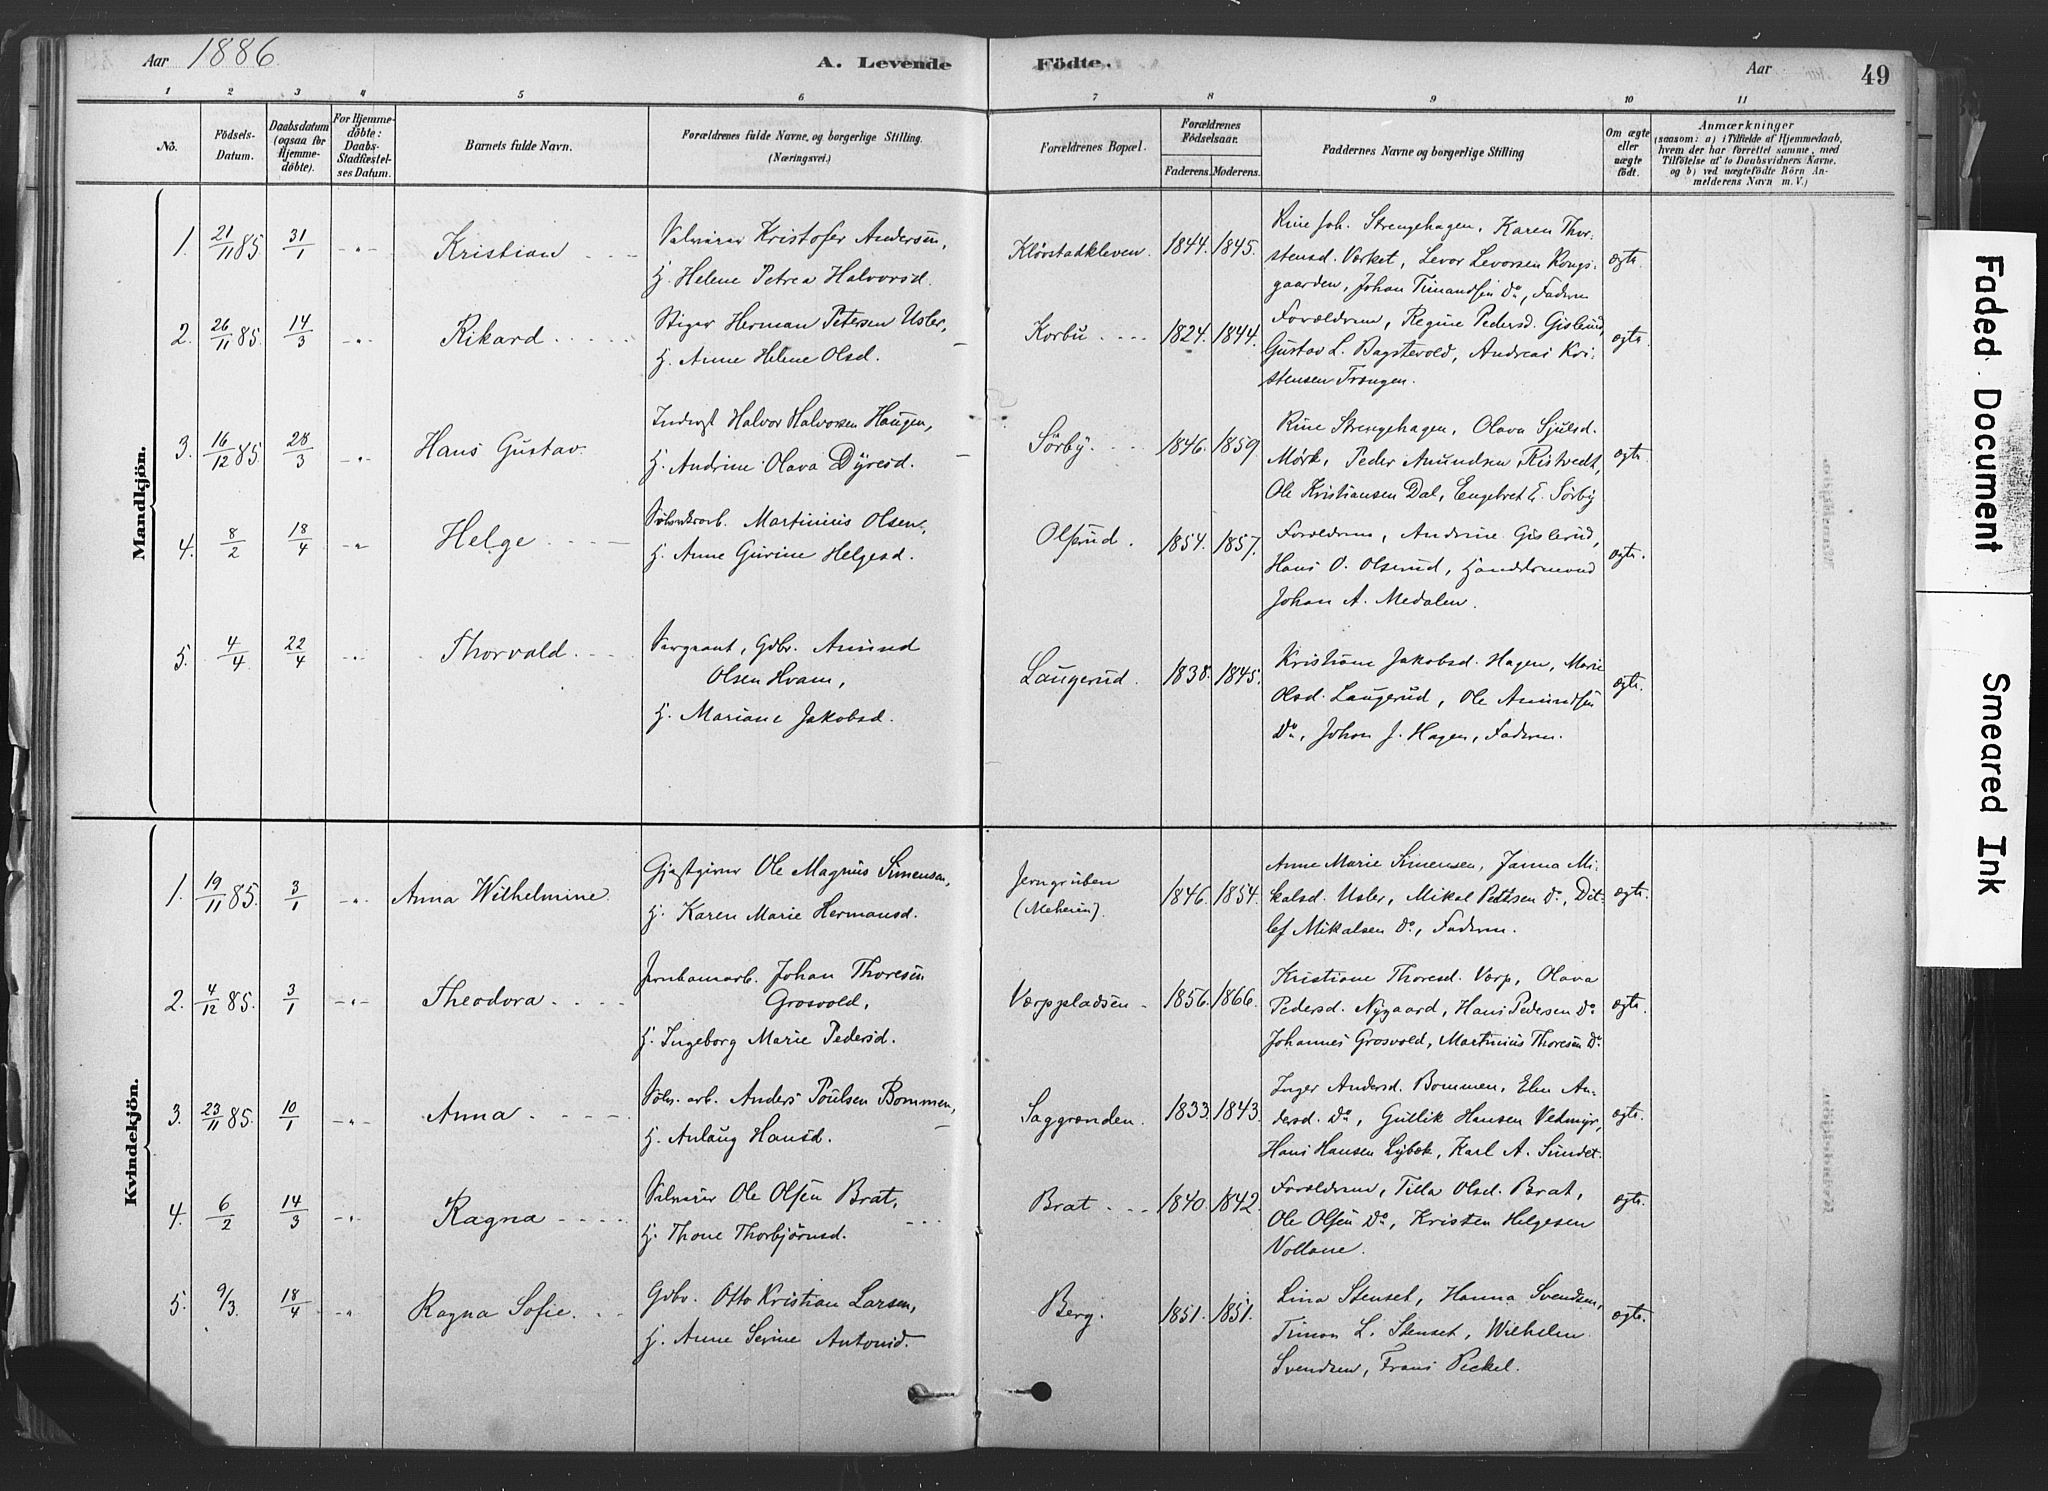 Aar 1886.
A. Levende Födte.
Aar
49
1 2 3 4 5 6 7 8 9 10 11
No.
Födsels-
Datum.
Daabsdatum
(ogsaa for
Hjemme-
döbte).
For Hjemme-
döbte:
Daabs-
Stadfæstel-
ses Datum.
Barnets fulde Navn.
Forældrenes fulde Navne, og borgerlige Stilling.
(Næringsvei.)
Forældrenes Bopæl.
Forældrenes
Födselsaar.
Faderens. Moderens.
Faddernes Navne og borgerlige Stilling
Om ægte
eller
uægte
födt.
Anmærkninger
(saasom: a) i Tilfælde af Hjemmedaab,
hvem der har forrettet samme, med
Tilföielse af to Daabsvidners Navne,
og b) ved uægtefödte Börn An-
melderens Navn m. V.)
Mandkjön.
1. 21/11 85. 31/1 -"- Kristian
Kristofer Andersen,
H. Helene Petrea Halvorsd.
Klövstadkleven. 1844. 1845.
Rine Joh. Strengehagen, Karen Thor-
stensd. Værket, Levor Levorsen Kongs-
gaarden, Johan Do, Faderen
ægte.
2. 26/11 85. 14/3 -"- Rikard
Stiger Herman Petersen Usler,
H. Anne Helene Olsd.
Korbu 1824. 1844.
Forældrene, Regine Pedersd. Gislerud,
Gustav L. Bagstevold, Andreas Kri-
stensen Trangen.
ægte.
3. 16/12 85. 28/3 -"- Hans Gustav.
Halvor Halvorsen Haugen,
H. Andrine Olava Dyresd.
Sörby. 1846. 1859.
Rine Strengehagen, Olava Sjulsd.
Mörk, Peder Amundsen Ristvedt,
Ole Kristiansen Dal, Engebret E. Sörby
ægte.
4. 8/2 18/4 -"- Helge
Martinius Olsen,
H. Anne Gurine Helgesd.
Olsrud. 1854. 1857.
Forældrene, Andrine Gislerud,
Hans O. Olsrud,
Johan A. Medalen.
ægte.
5. 4/4 22/4 -"- Thorvald.
Sergeant, Gdbr. Amund
Olsen Hvam,
H. Mariane Jakobsd.
Laugerud. 1838. 1845.
Kristiane Jakobsd. Hagen, Marie
Olsd. Laugerud, Ole Amundsen
Do, Johan J. Hagen, Faderen.
ægte.
Kvindekjön.
1. 19/11 85. 3/1 -"- Anna Wilhelmine.
Gjæstgiver Ole Magnus Simensen,
H. Karen Marie Hermansd.
Jerngruben
(Meheien). 1846. 1854.
Anne Marie Simensen, Janna Mi-
kalsd. Usler, Mikal Petersen Do, Dit-
lef Mikalsen Do, Faderen.
ægte.
2. 4/12 85. 3/1 -"- Theodora
Jernbanearb. Johan Thoresen
Grosvold,
H. Ingeborg Marie Pedersd.
Værppladsen 1856. 1866.
Kristiane Thoresd. Værp, Olava
Pedersd. Nygaard, Hans Pedersen Do
Johannes Grosvold, Martinius Thoresen Do
ægte.
3. 23/11 85. 10/1 -"- Anna
Sölv. arb. Anders Poulsen Bommen,
H. Anlaug Hansd.
Saggrenden. 1833. 1843.
Inger Andersd. Bommen, Elen An-
dersd. Do, Gullik Hansen Vedmyr,
Hans Hansen Lybæk, Karl A. Sundet.
ægte.
4. 6/2 14/3 -"- Ragna
Ole Olsen Brat,
H. Thone Thorbjörnsd.
Brat 1840. 1842.
Forældrene, Tilla Olsd. Brat,
Ole Olsen Do, Kristen Helgesen
Vollane.
ægte.
5. 9/3. 18/4 -"- Ragna Sofie.
Gdbr. Otto Kristian Larsen,
H. Anne Serine Antonid.
Berg. 1851. 1851.
Lina Stenset, Hanna Svendsen,
Timon L. Stenset, Wilhelm
Svendsen, Frans Pickel.
ægte.
Faded Document
Smeared Ink